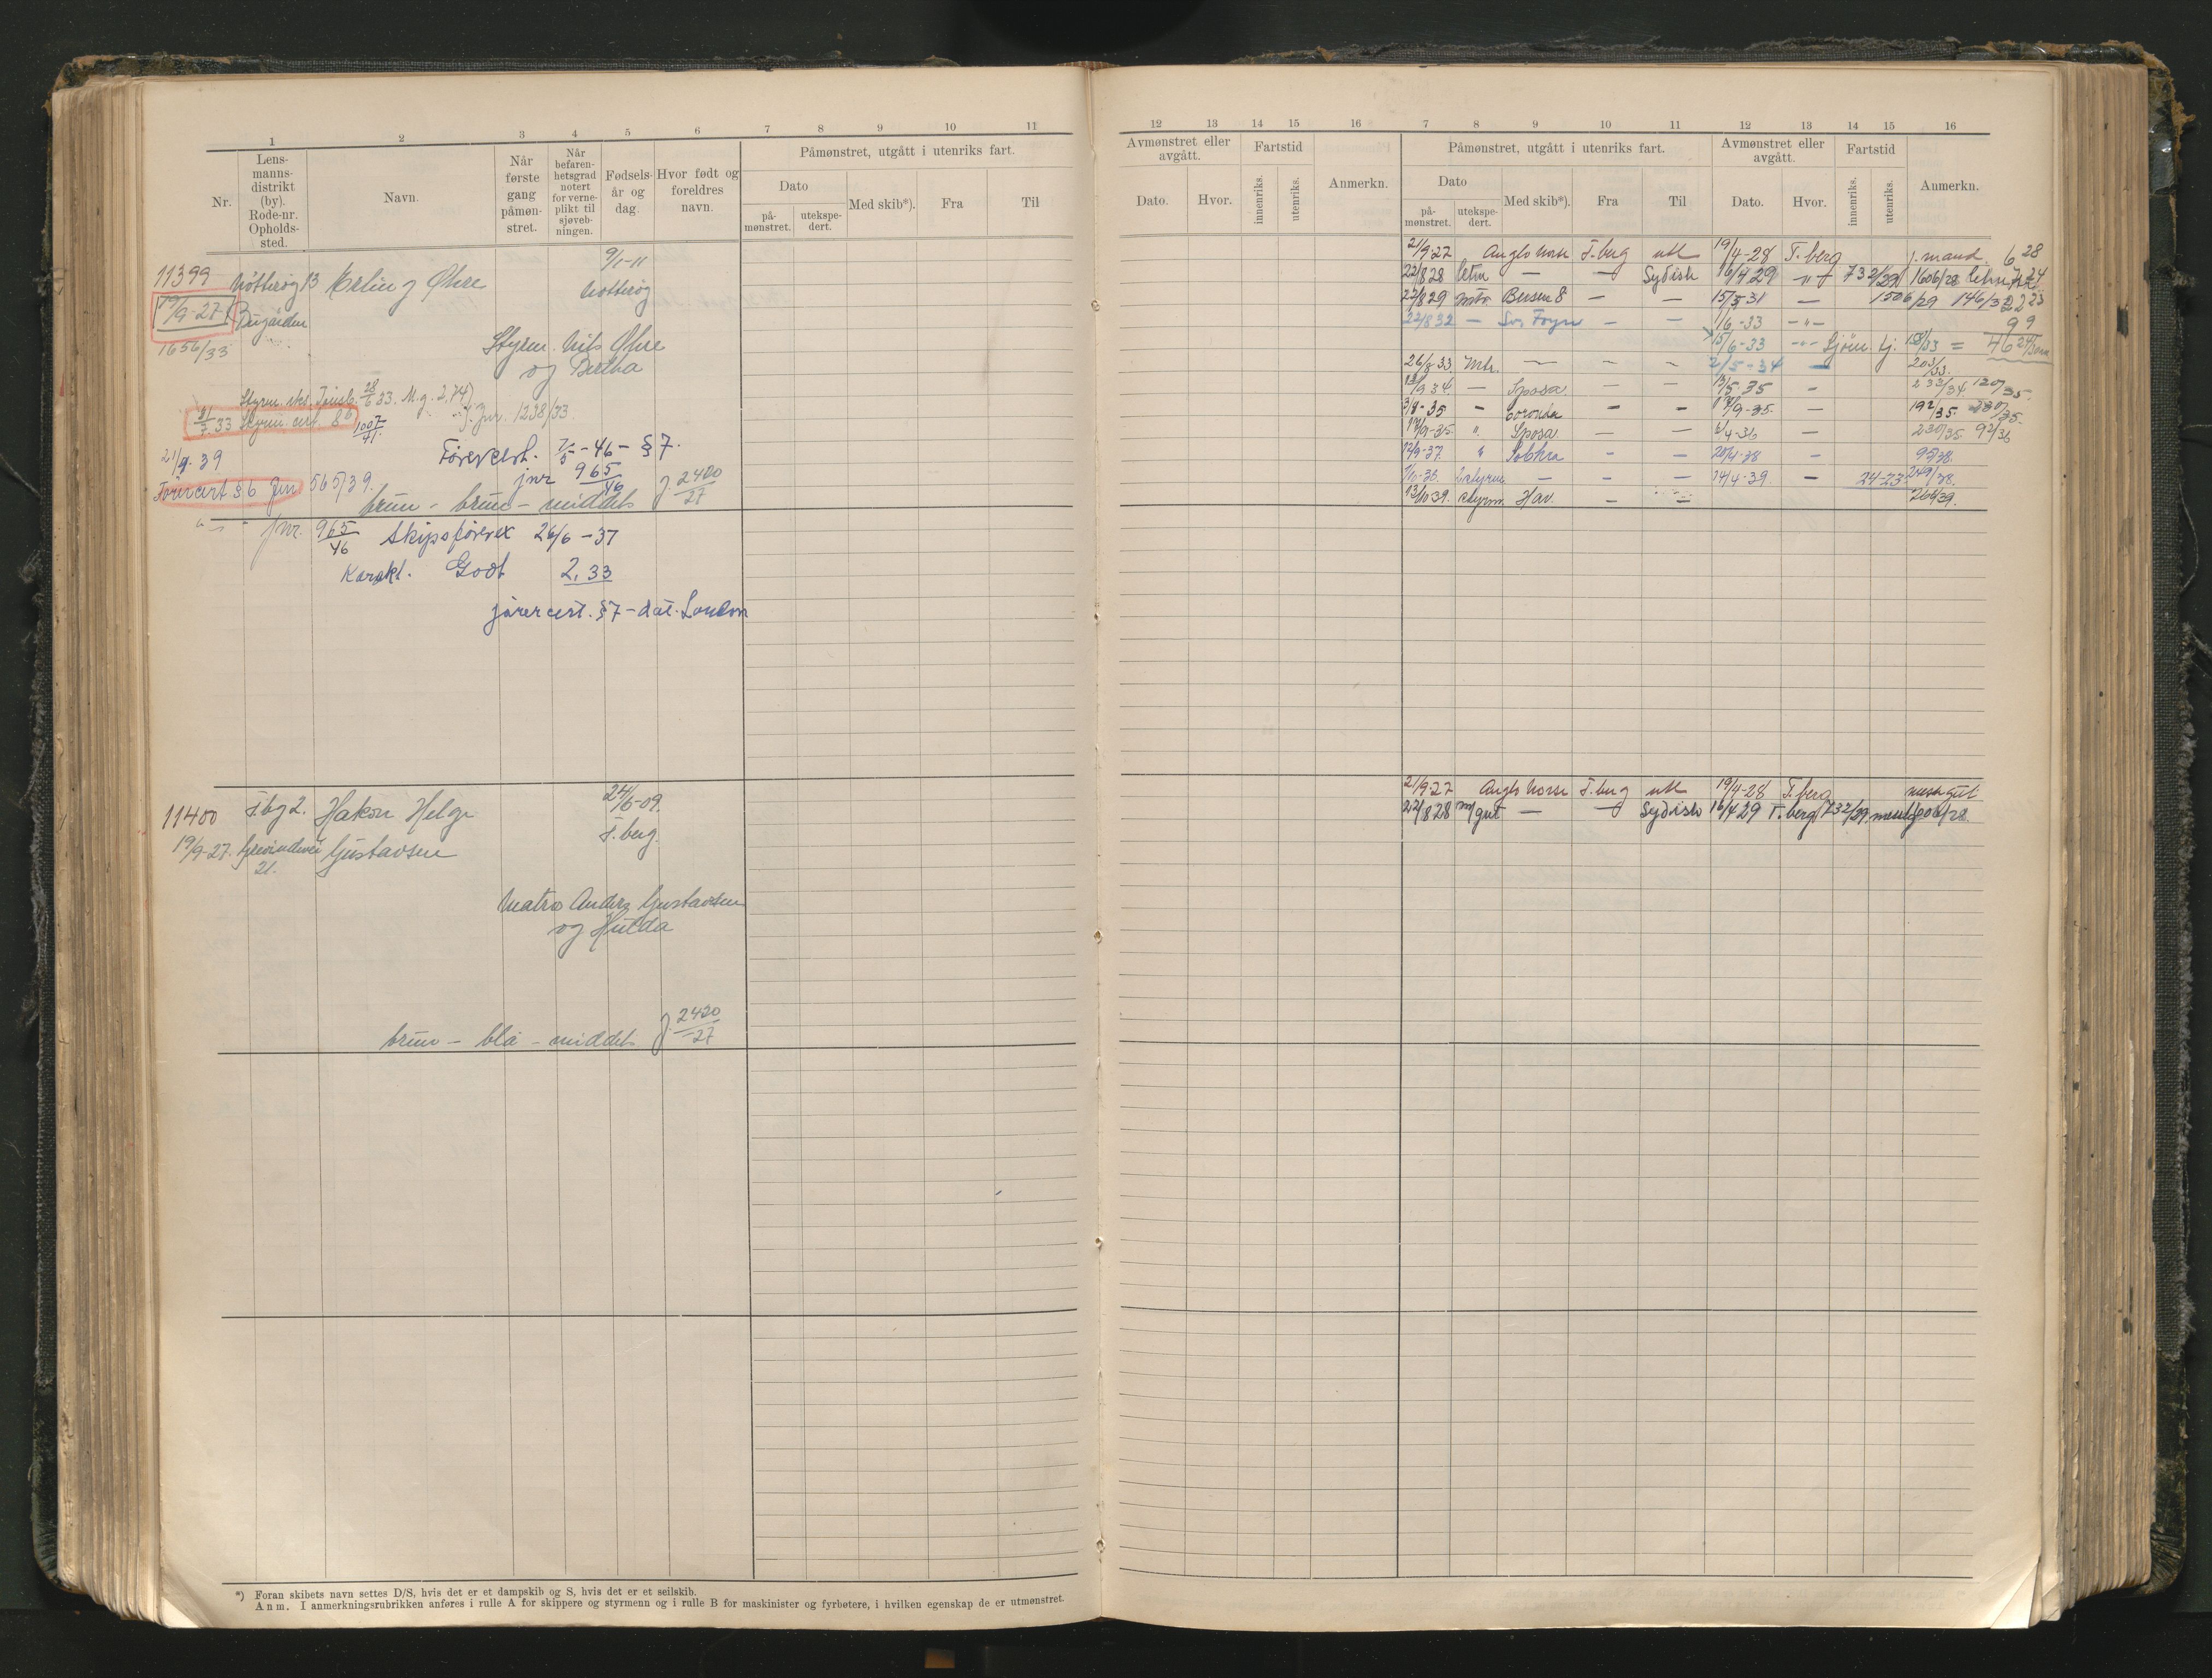 1 2 3 4 5 6 7 8 9 10 11
Nr.
Lens-
manns-
distrikt
(by).
Rode-nr.
Opholds-
sted.
Navn.
Når
første
gang
påmøn-
stret.
Når
befaren-
hetsgrad
notert
for verne-
plikt til
sjøveb-
ningen.
Fødsels-
år og
dag.
Hvor født og
foreldres
navn.
Påmønstret, utgått i utenriks fart.
Dato
på-
mønstret.
utekspe-
dert.
Med skib*).
Fra
Til
11399 Nøtterøy 13 Erling Øhre 9/1-11
19/9-27 Nøtterøy
1656/33
Styrm. Nils Øhre
og Bertha
Styrm. eks. Tønsb. 28/6 33. M.g. 2,74)
21/7-33 Styrm. cert. § 6 1007/41 J. Jnr. 1238/33
21/4-39 Førercert. 7/5-46- § 7.
Førercert § 6 Jnr 565/39. jnr 965/46
brun - brun - middels J. 2420/27
" - " jnr. 965/46 Skipsførerex 26/6-37
Karakt. Godt 2,33
førercert. §7-dat. London
11400 T.bg 2. Hakon Helge 24/6-09.
19/9-27. Gustavsen T.berg.
21.
Matros Anders Gustavsen
og Hulda
brun - blå - middels J. 2420/27
*) Foran skibets navn settes D/S, hvis det er et dampskib og S, hvis det er et seilskib.
Anm. I anmerkningsrubrikken anføres i rulle A for skippere og styrmenn og i rulle B for maskinister og fyrbøtere, i hvilken egenskap de er utmønstret.
12 13 14 15 16 7 8 9 10 11 12 13 14 15 16
Avmønstret eller
avgått.
Dato.
Hvor.
Fartstid
innenriks.
utenriks.
Anmerkn.
Påmønstret, utgått i utenriks fart.
Dato
på-
mønstret.
utekspe-
dert.
Med skib*).
Fra
Til
Avmønstret eller
avgått.
Dato.
Hvor.
Fartstid
innenriks.
utenriks.
Anmerkn.
21/9-27 Anglo Norse T.berg utl 19/4-28 T.berg j. mand 6 28
22/8 28 - - Sydish 16/4 29 - " - 732/29 1606/28
22/8 29 mtr Bersen 8 - - 15/5-31 - 1506/29 146/32 22 23
22/8 32 - Sv. Foyn - - 1/6-33 - " - 9 9
15/6-33 - " - =
26/8 33 Mtr. - - - 2/5-34 - 203/33.
34. - Sposa - - 35 - 233/34. 120/35.
3/8-35 - Coronda - - 17/9-35. - 192/35. 230/35.
17/9-35. " Sposa - - 6/4-36 - 230/35. 92/36
37. " Solhra - - 20/4-38 - 95/38.
2styrm - - - 14/4-39 - 24-23 249/38.
13/10 39. styrm. Hav - - 264/39.
21/9-27 Anglo Norse T.berg utl 19/4-28 T.berg
22/8 28 m/gut - - Sydish 16/4 29 T.berg 732/29. 1606/28.